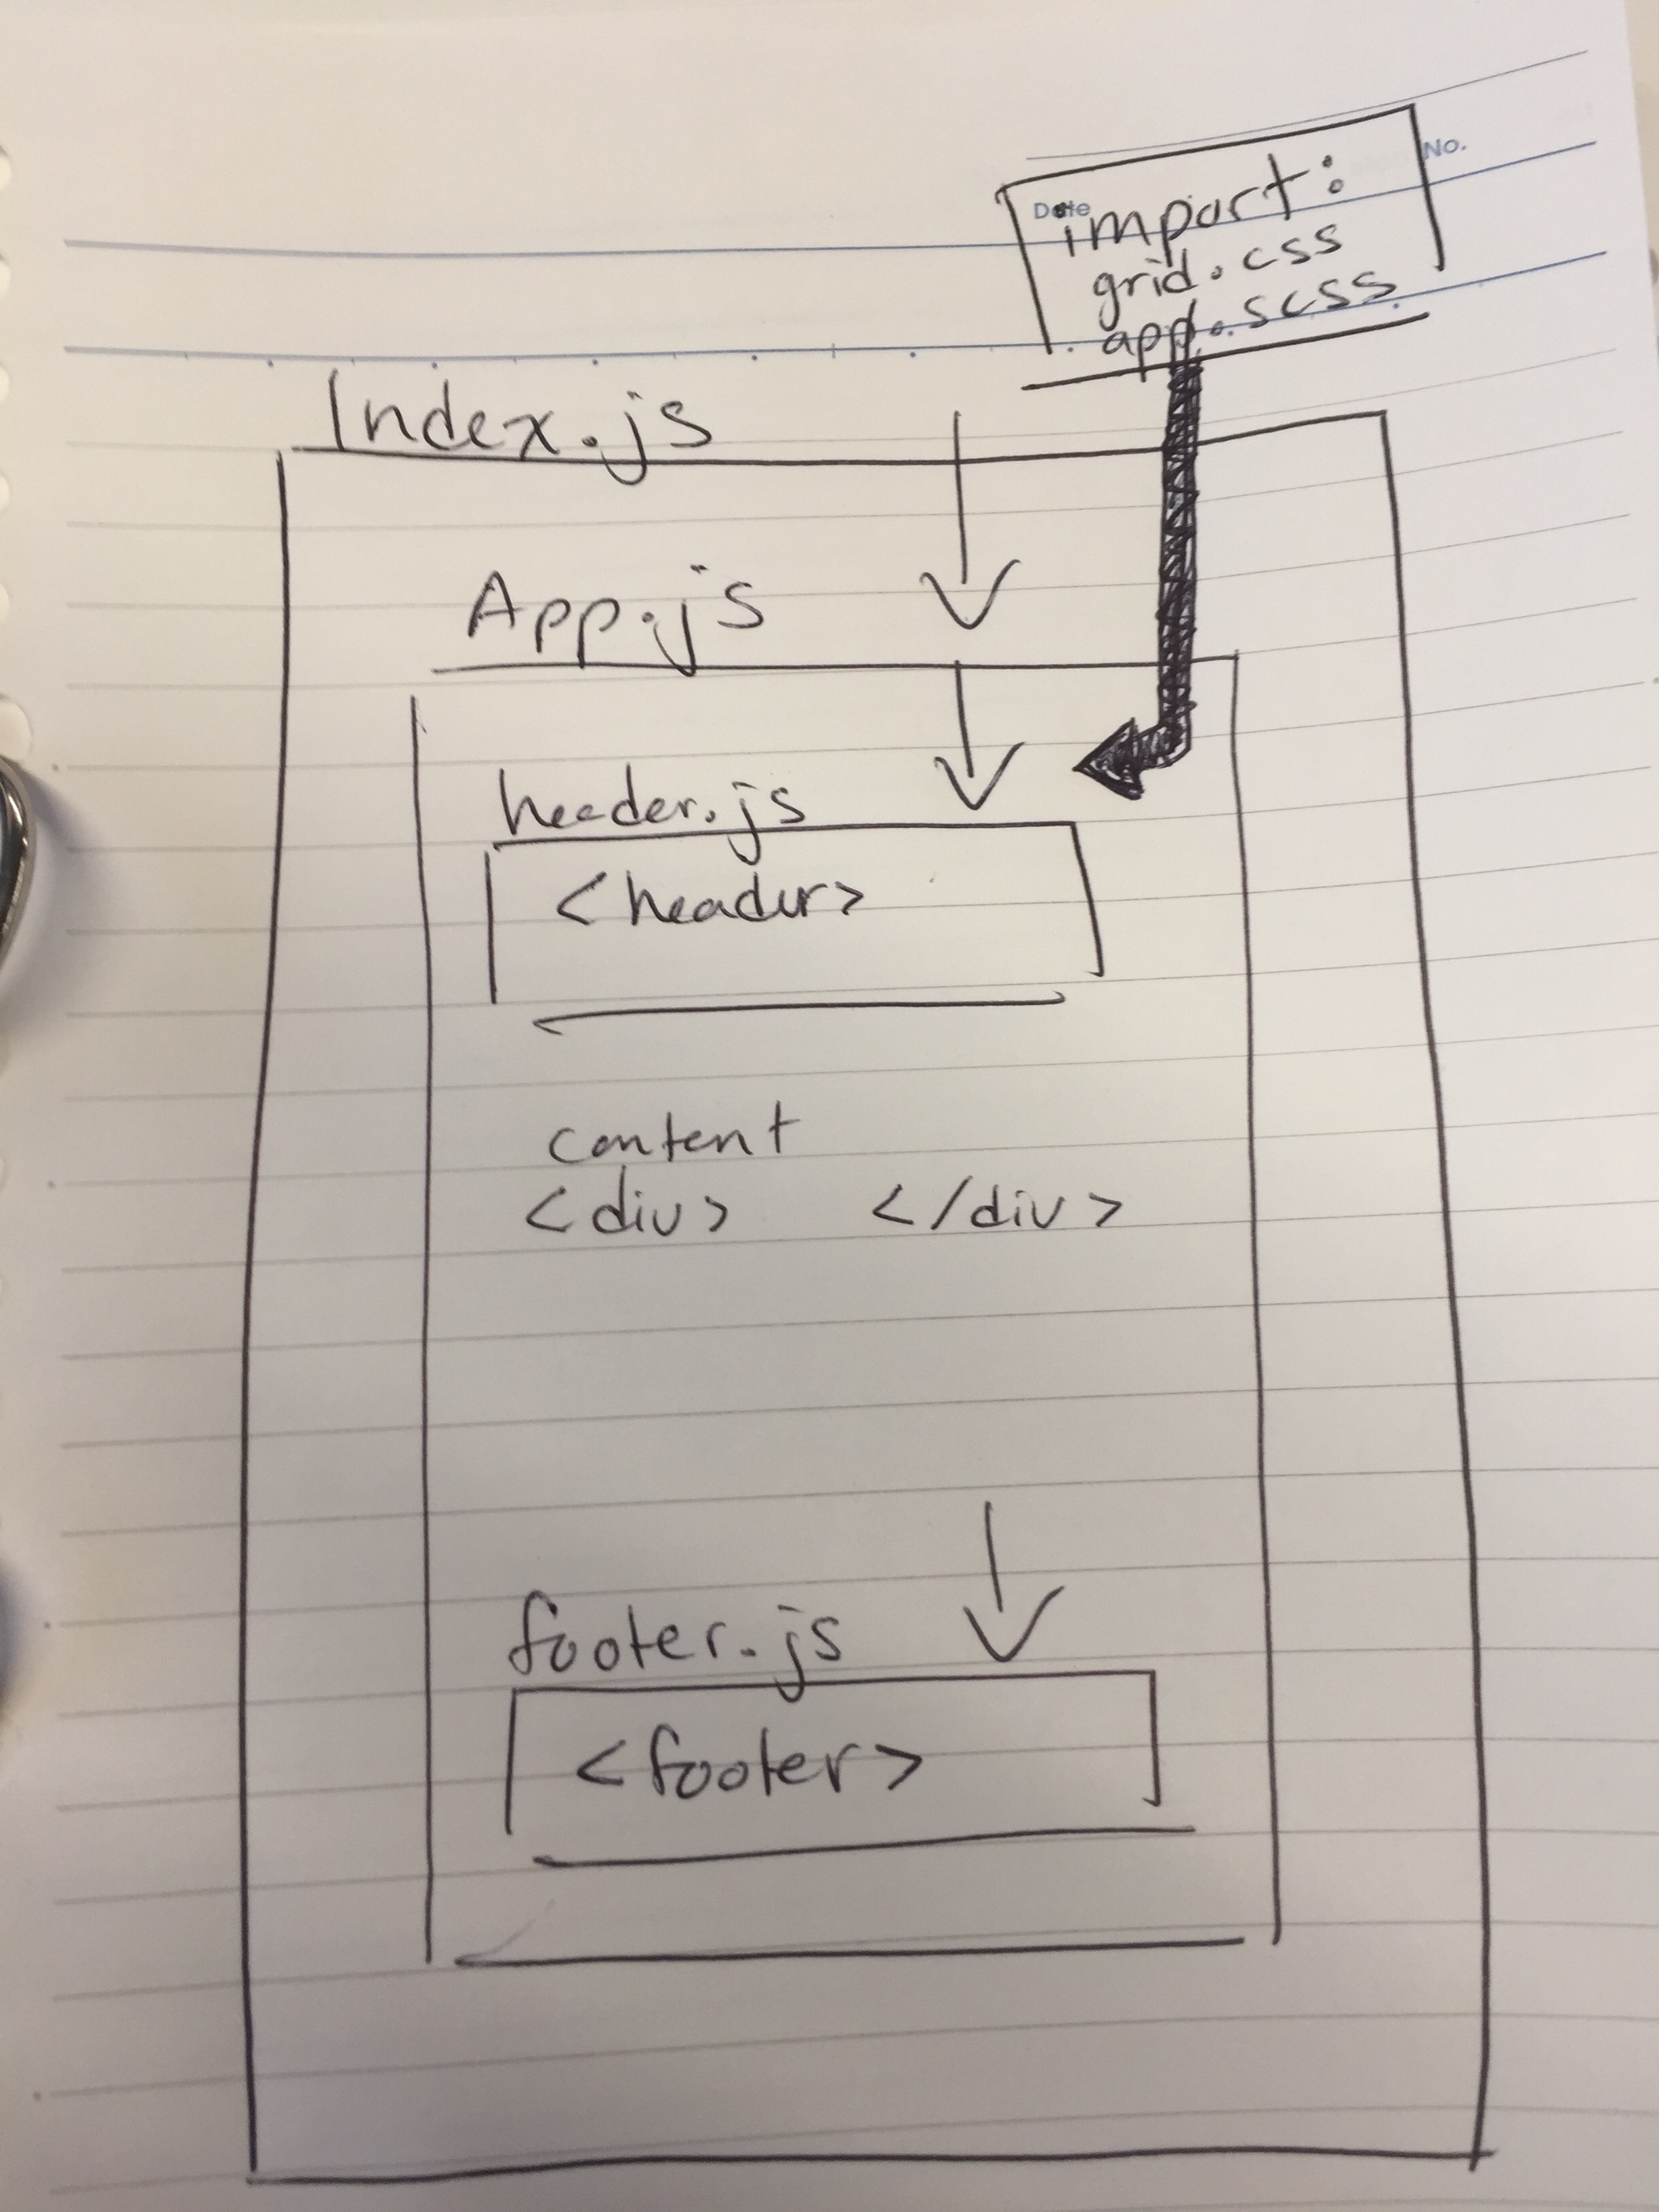 No.
Date
import:
grid.css
app.scss
Index.js
App.js
header.js
<header>
content
<div> </div>
footer.js
<footer>